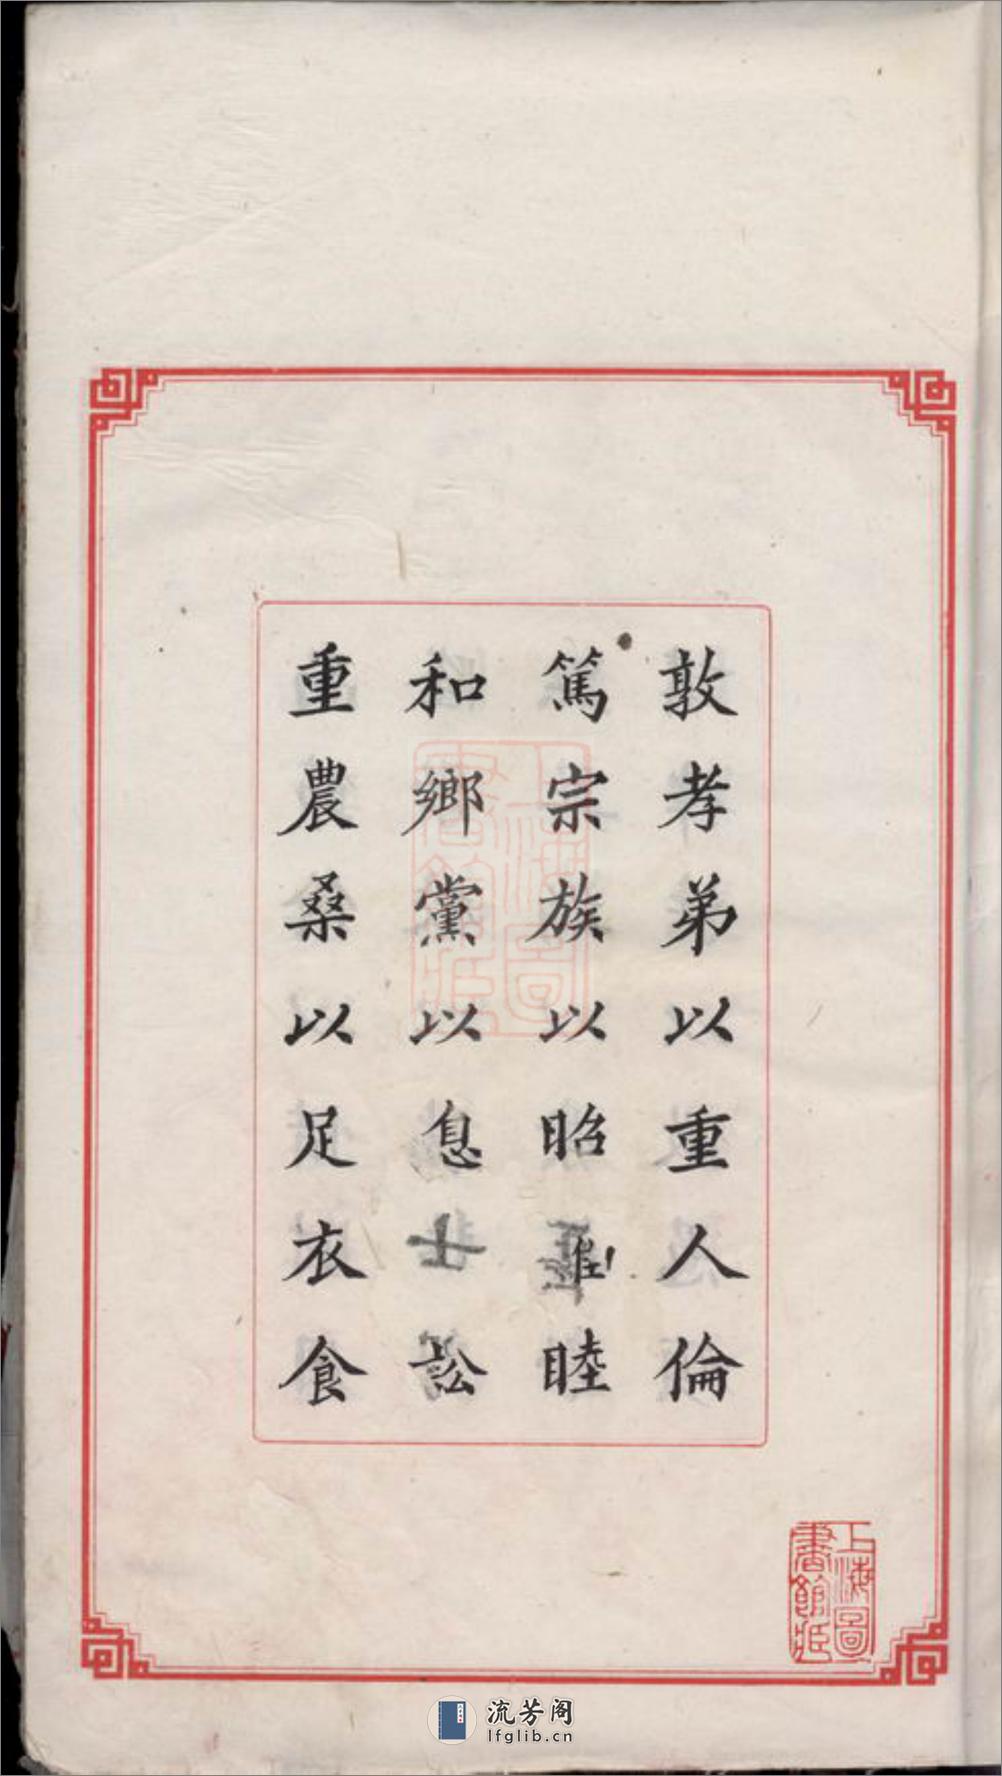 敦孝弟以重人倫
篤宗族以昭睦
和鄉黨以息訟
重農桑以足衣食
上海圖
書館藏
上海圖
書館藏
流芳阁
lfglib.cn